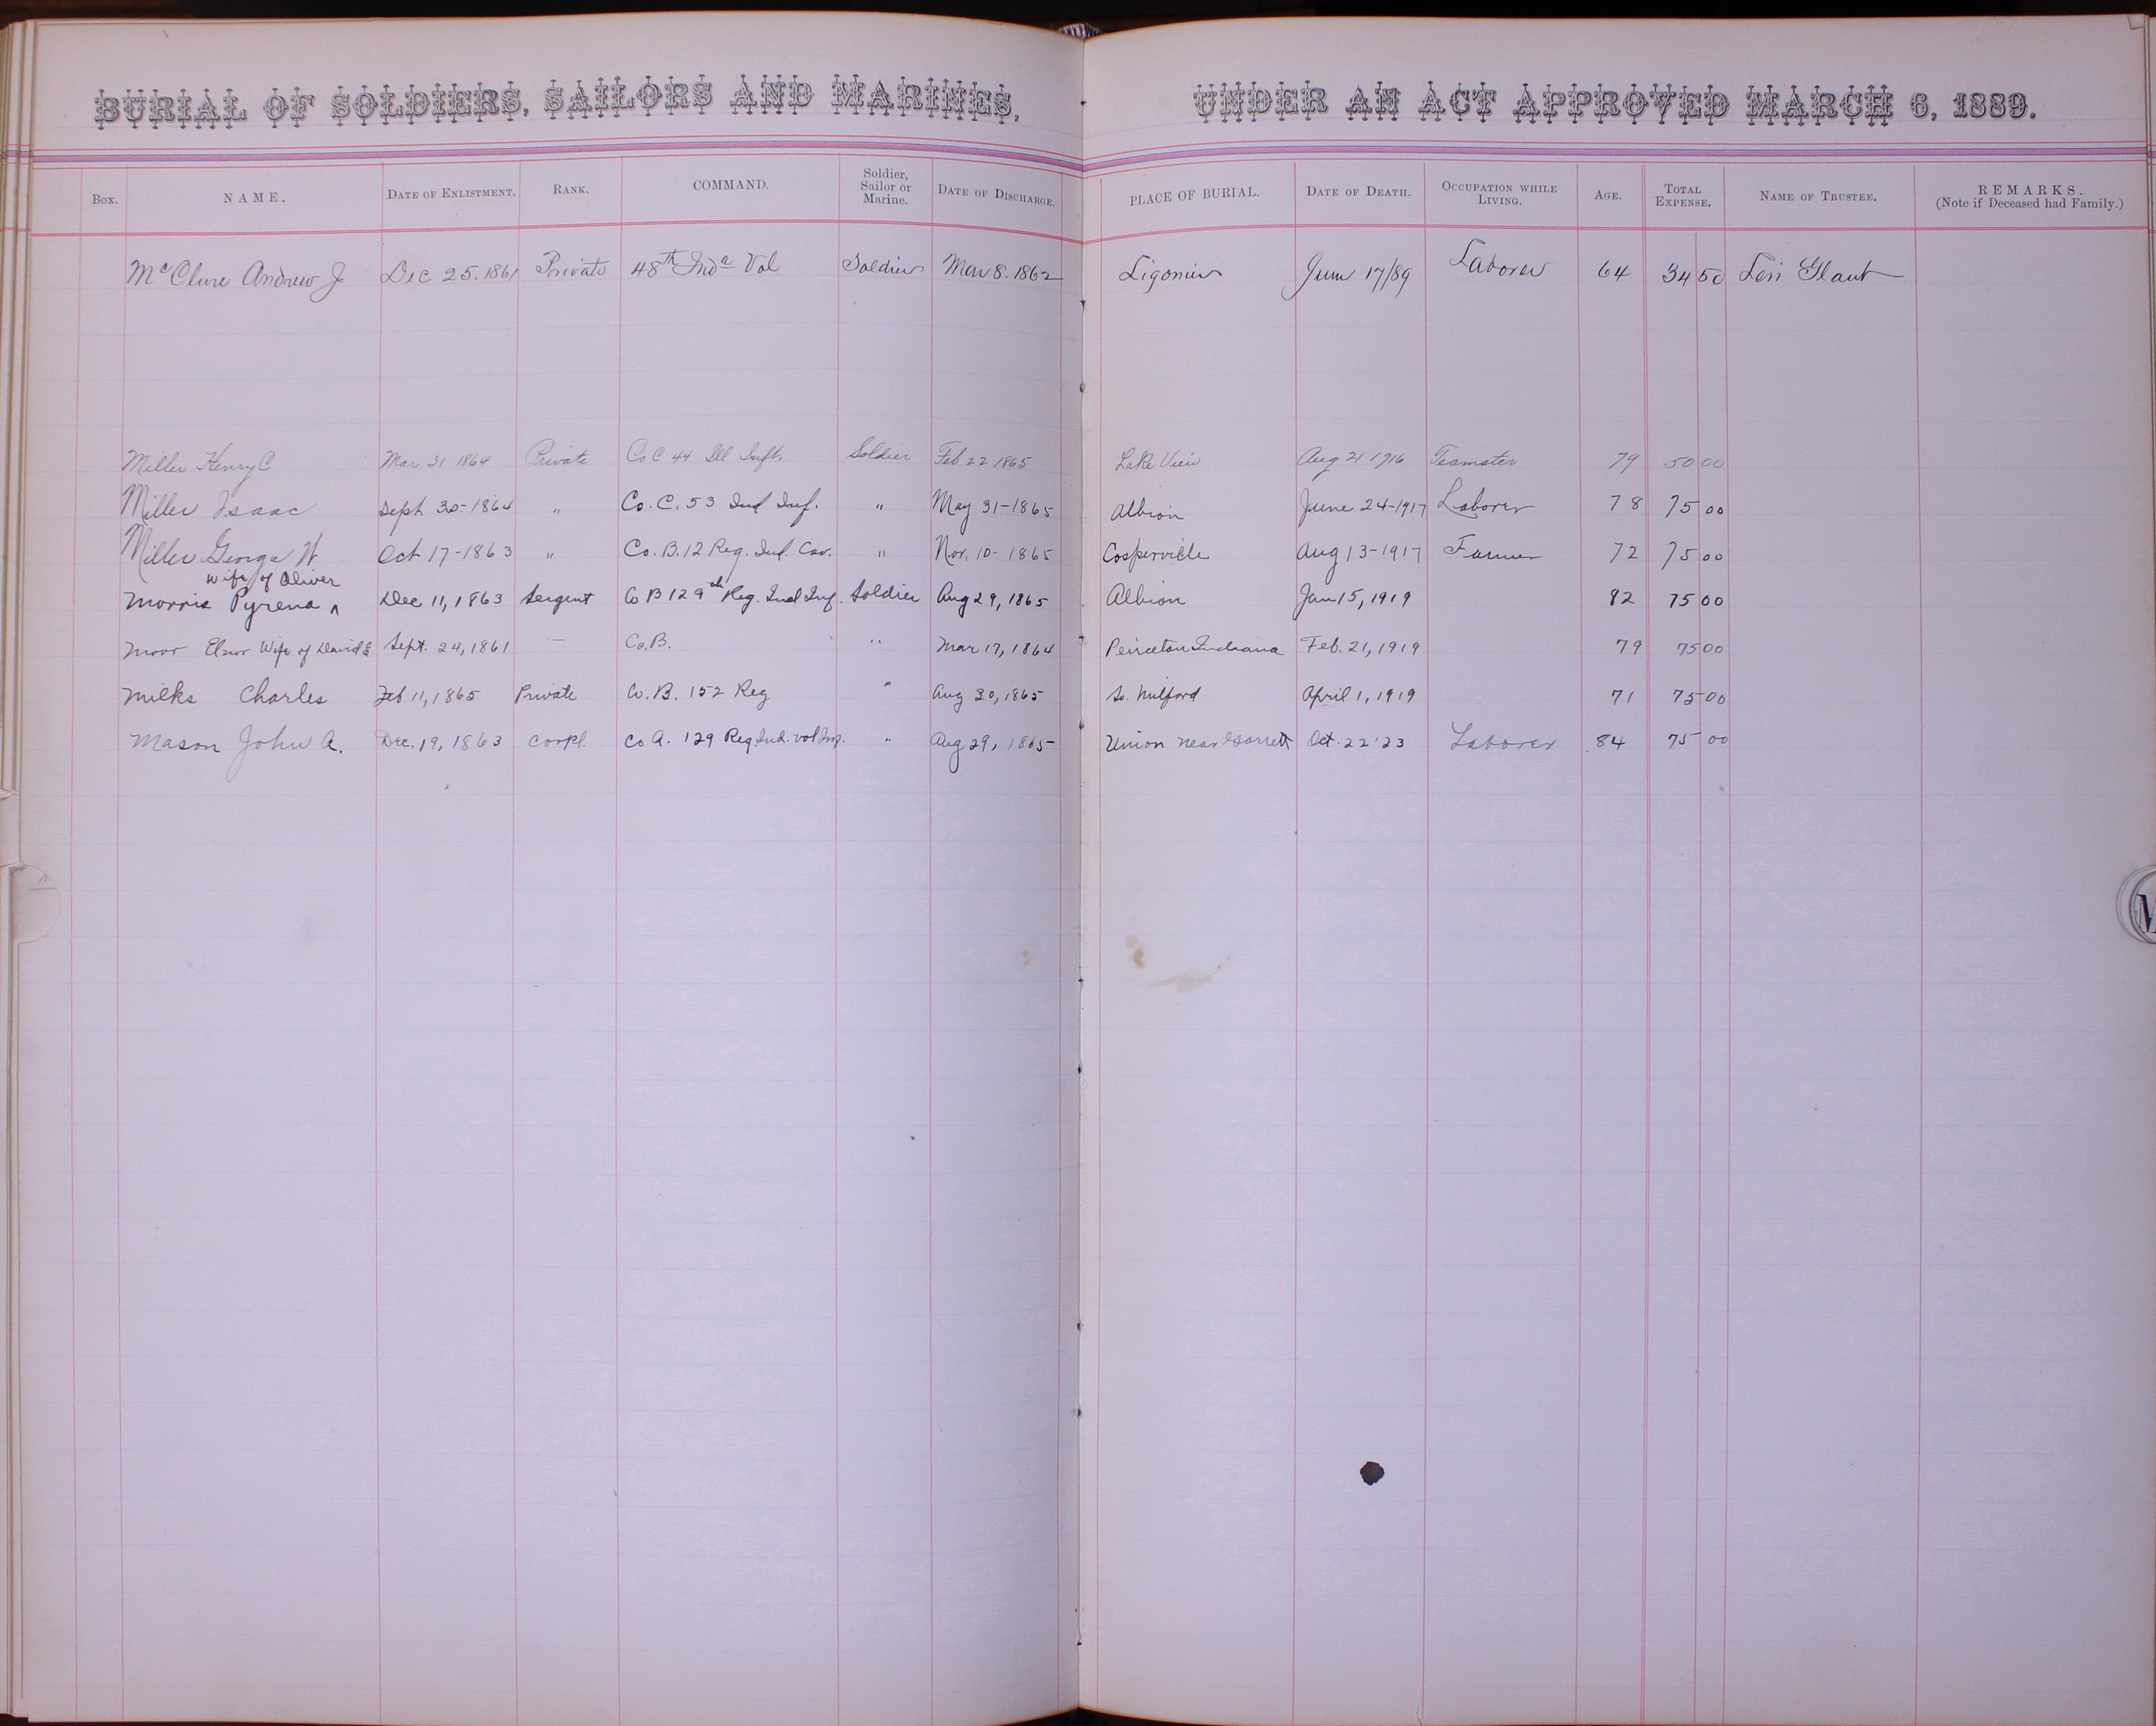 BURIAL OF SOLDIERS, SAILORS AND MARINES, UNDER AN ACT APPROVED MARCH 6, 1889.
Box. NAME. DATE OF ENLISTMENT. RANK. COMMAND. Soldier, Sailor or Marine. DATE OF DISCHARGE. PLACE OF BURIAL. DATE OF DEATH. OCCUPATION WHILE LIVING. AGE. TOTAL EXPENSE. NAME OF TRUSTEE. REMARKS. (Note if Deceased had Family.)
McClure Andrew J Dec 25. 1861 Private 48th Inda Vol Soldier Mar 8. 1862 Ligonier June 17/89 Laborer 64 34 50 Levi Glaut
Miller Henry C Mar 31 1864 Private Co C 44 Ill Inft. Soldier Feb 22 1865 Lake View Aug 21 1916 Teamster 79 50 00
Miller Isaac Sept 30-1864 " Co. C. 53 Ind Inf. " May 31-1865 Albion June 24-1917 Laborer 78 75 00
Miller George W Oct 17-1863 " Co. B. 12 Reg. Ind. Cav. " Nov. 10-1865 Cosperville Aug 13-1917 Farmer 72 75 00
wife of Oliver
Morris Pyrena ^ Dec 11, 1863 Sergent Co B 129th Reg. Ind Inf. Soldier Aug 29, 1865 Albion Jan 15, 1919 82 75 00
Moor Elnor Wife of David E Sept. 24, 1861 — Co. B. " Mar 17, 1864 Peirceton Indiana Feb. 21, 1919 79 75 00
Milks Charles Feb 11, 1865 Private Co. B. 152 Reg " Aug 30, 1865 So. Milford April 1, 1919 71 75 00
Mason John A. Dec. 19, 1863 Corpl. Co A. 129 Reg. Ind. vol Inf. " Aug 29, 1865 Union near Garrett Oct. 22 '23 Laborer 84 75 00
M